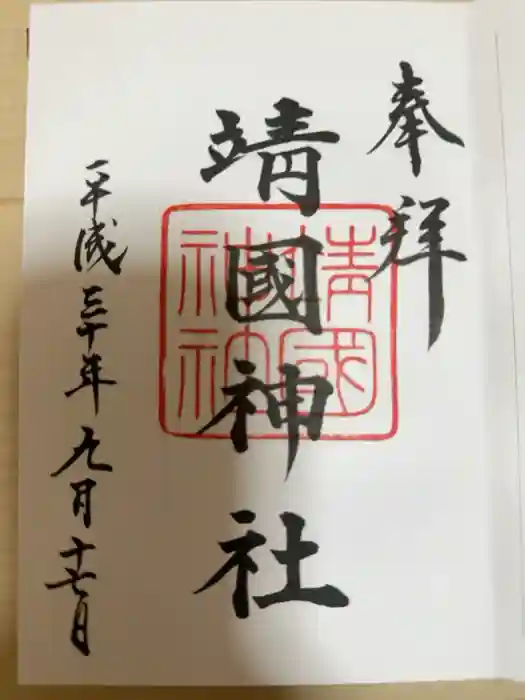 奉拝
靖國神社
靖國
神社
平成三十年九月十七日